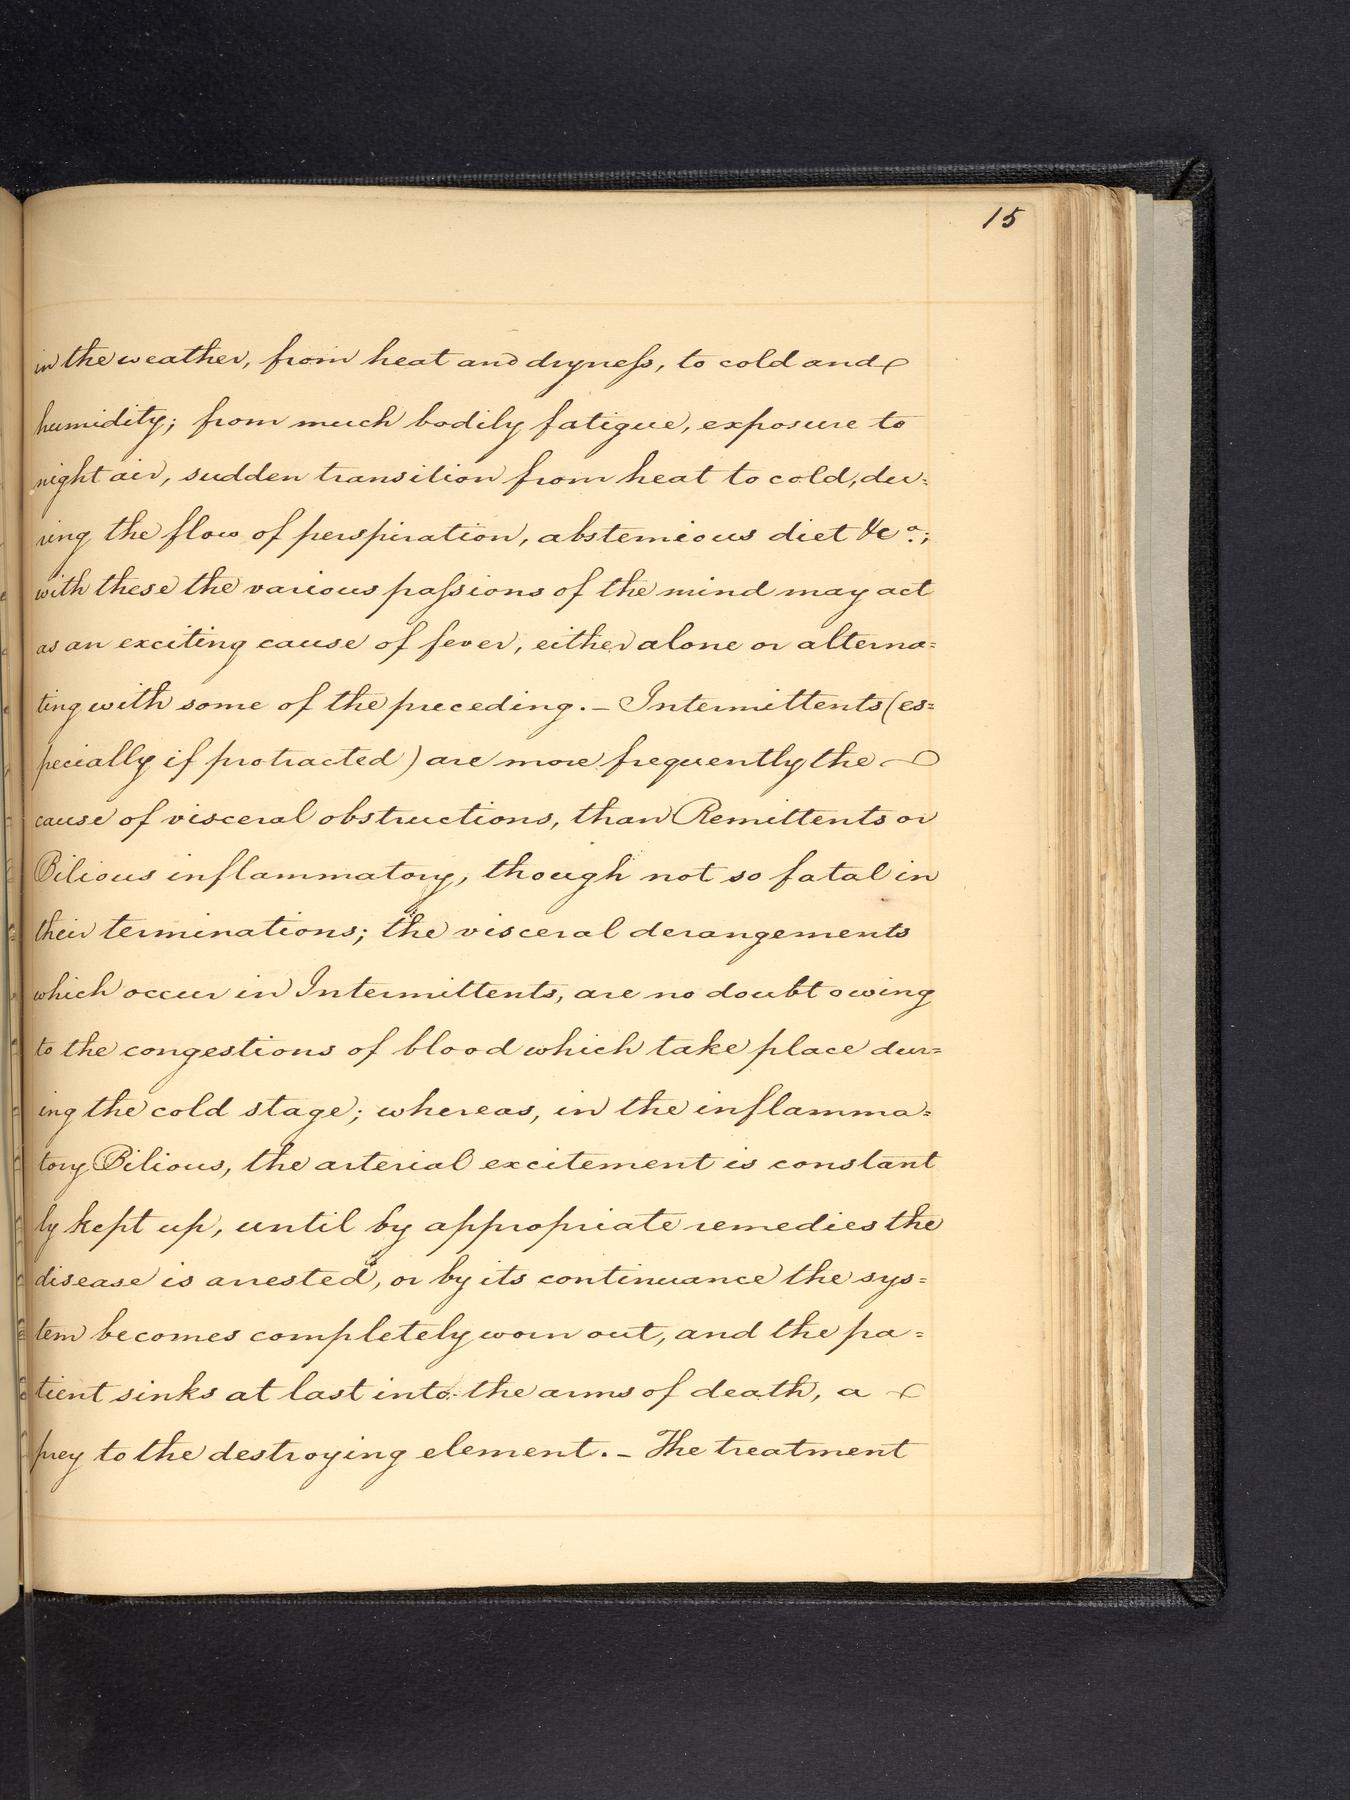 15
in the weather, from heat and dryneſs, to cold and
humidity; from much bodily fatigue, exposure to
night air, sudden transition from heat to cold, du=
ring the flow of perspiration, abstemious diet &c.a;
with these the various paſsions of the mind may act
as an exciting cause of fever, either alone or alterna=
ting with some of the preceding. – Intermittents (es=
pecially if protracted) are more frequently the
cause of visceral obstructions, than Remittents or
Bilious inflammatory, though not so fatal in
their terminations; the visceral derangements
which occur in Intermittents, are no doubt owing
to the congestions of blood which take place dur=
ing the cold stage; whereas, in the inflamma=
tory Bilious, the arterial excitement is constant
ly kept up, until by appropriate remedies the
disease is arrested, or by its continuance the sys=
tem becomes completely worn out, and the pa=
tient sinks at last into the arms of death, a
prey to the destroying element. – The treatment